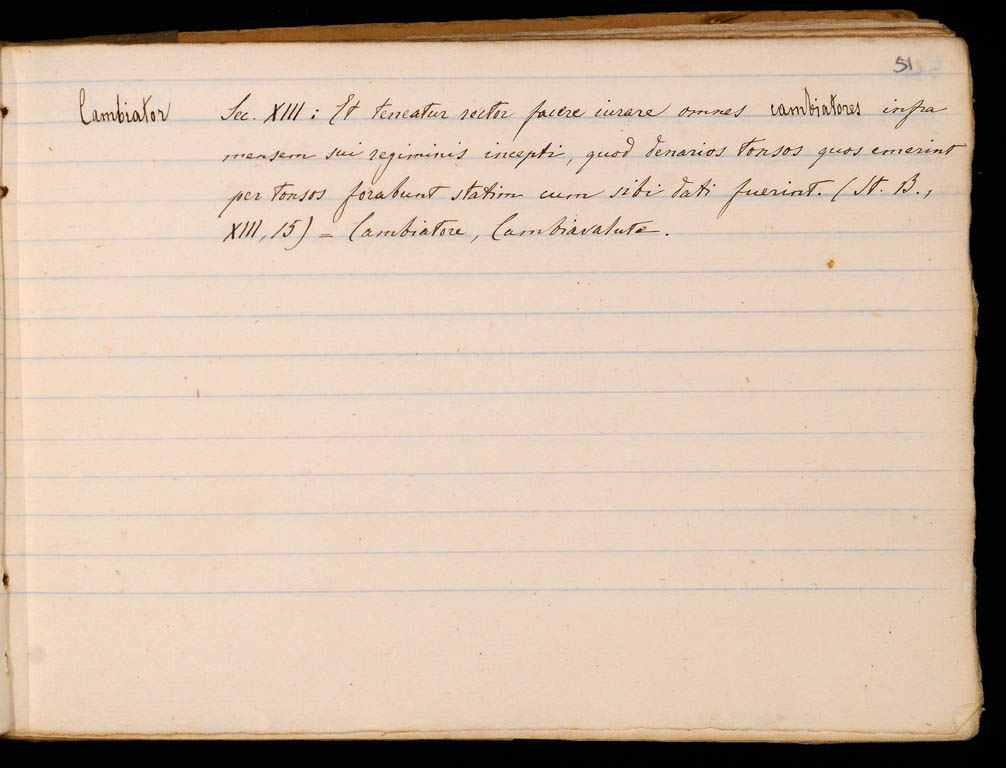 51
Cambiator Sec. XIII : Et teneatur rector facere iurare omnes cambiatores infra
mensem sui regiminis incepti, quod denarios tonsos quos emerint
per tonsos forabunt statim cum sibi dati fuerint. (St. B.,
XIII, 15) = Cambiatore, Cambiavalute.